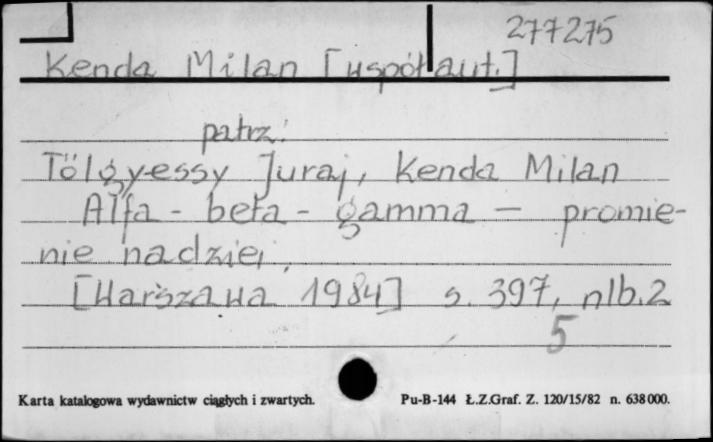 277275
Kenda Milan [współaut.]
patrz:
Tölgyessy Juraj, Kenda Milan
Alfa - beta - gamma - promie-
nie nadziei.
[Warszawa 1984] s. 397, nlb. 2
5
Karta katalogowa wydawnictw ciągłych i zwartych. Pu-B-144 Ł.Z.Graf. Z. 120/15/82 n. 638000.